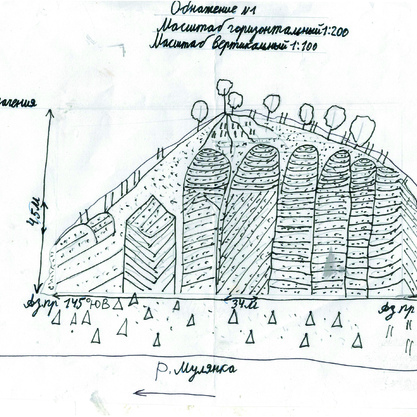 Обнажение №1
Масштаб горизонтальный 1:200
Масштаб вертикальный 1:100
4,5 м
Аз пр 145° ЮВ
34 м
Аз пр
р. Мулянка